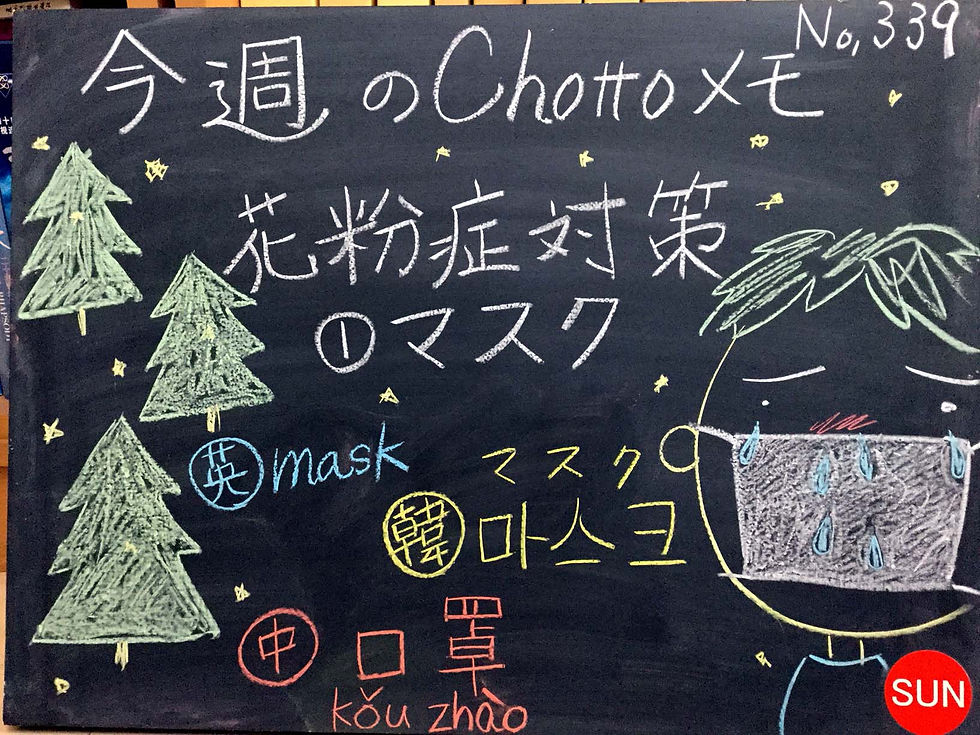 No,339
今週のChottoメモ
花粉症対策
①マスク
英 mask
マスク
韓 마스크
中 口罩
kǒu zhào
SUN